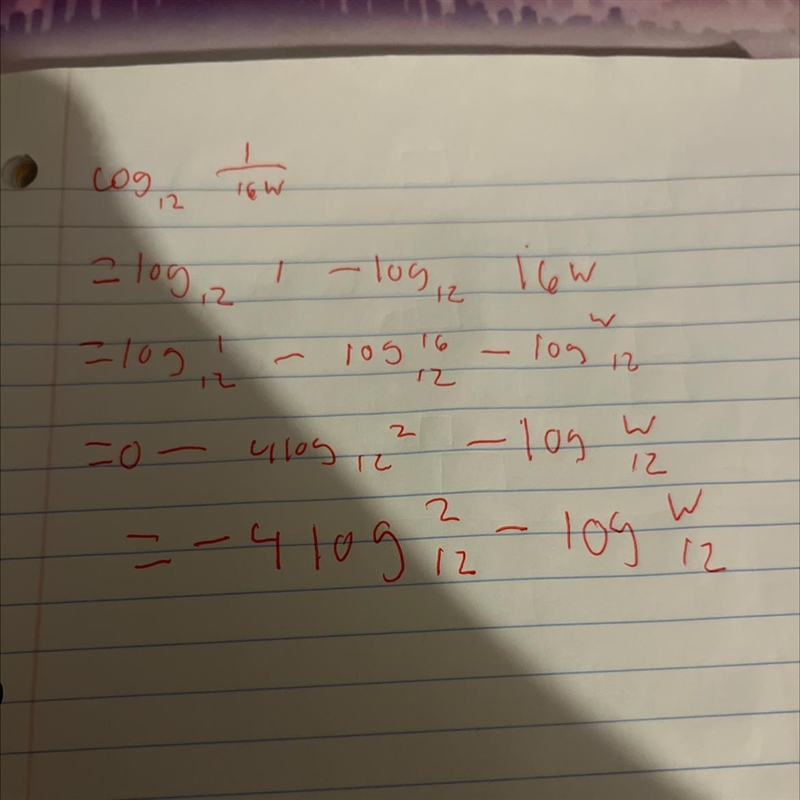 log₁₂ 1/16w
= log₁₂ 1 - log₁₂ 16w
= log₁₂ 1 - log₁₂ 16 - log₁₂ w
= 0 - 4log₁₂ 2 - log₁₂ w
= -4log₁₂ 2 - log₁₂ w